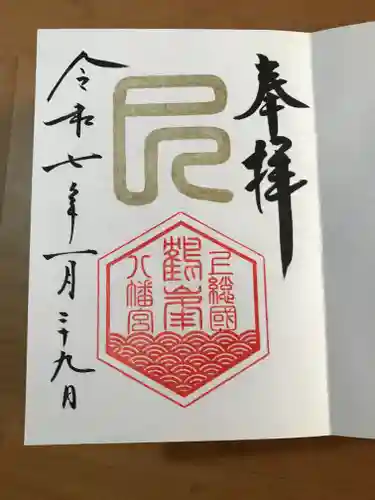 奉拝
巳
上総國
鶴峯
八幡宮
令和七年一月二十九日